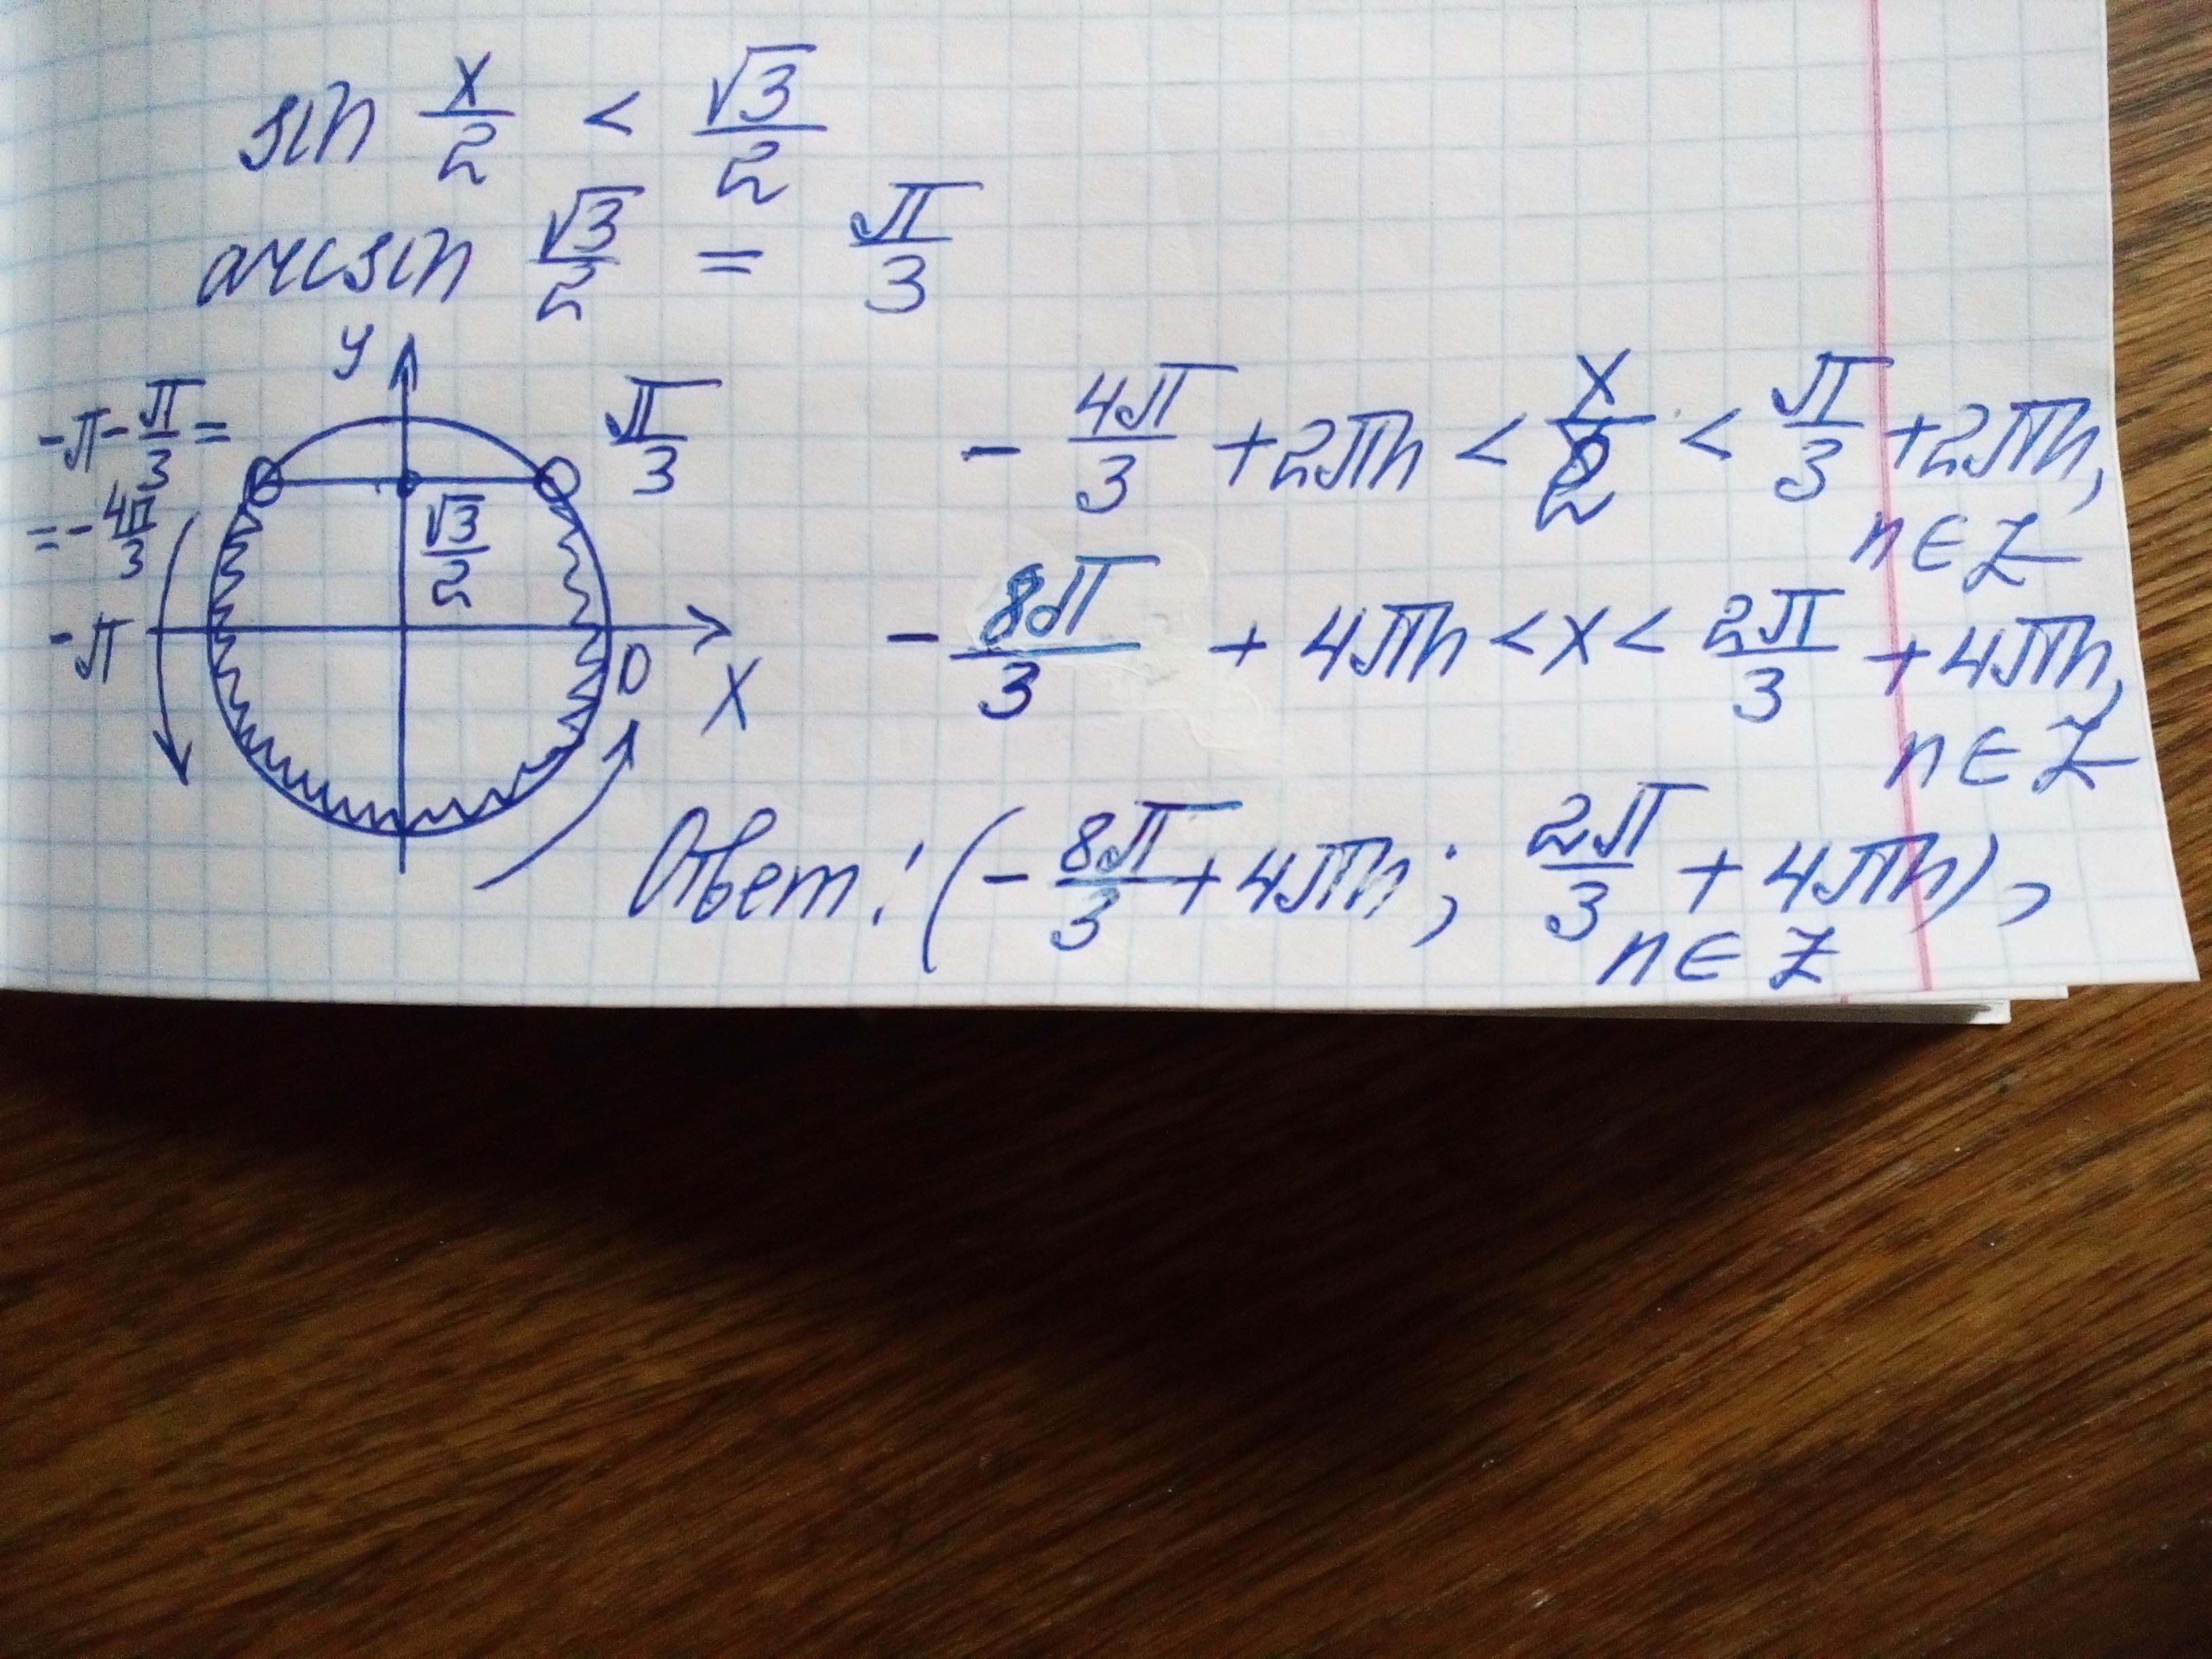 sin x/2 < √3/2
arcsin √3/2 = π/3
y
-π-π/3=
=-4π/3
-π
π/3
√3/2
0
x
-4π/3+2πn < x/2 < π/3+2πn,
n∈Z
-8π/3 + 4πn < x < 2π/3 + 4πn,
n∈Z
Ответ: (-8π/3+4πn; 2π/3 + 4πn),
n∈Z